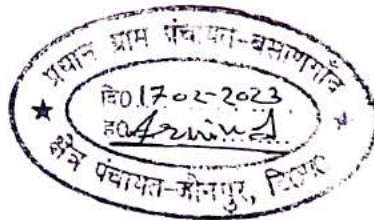 प्रधान ग्राम पंचायत-बसाणगाँव
दि0 17.02-2023
ह0 Arvind
क्षेत्र पंचायत-जौनपुर, टि0ग0